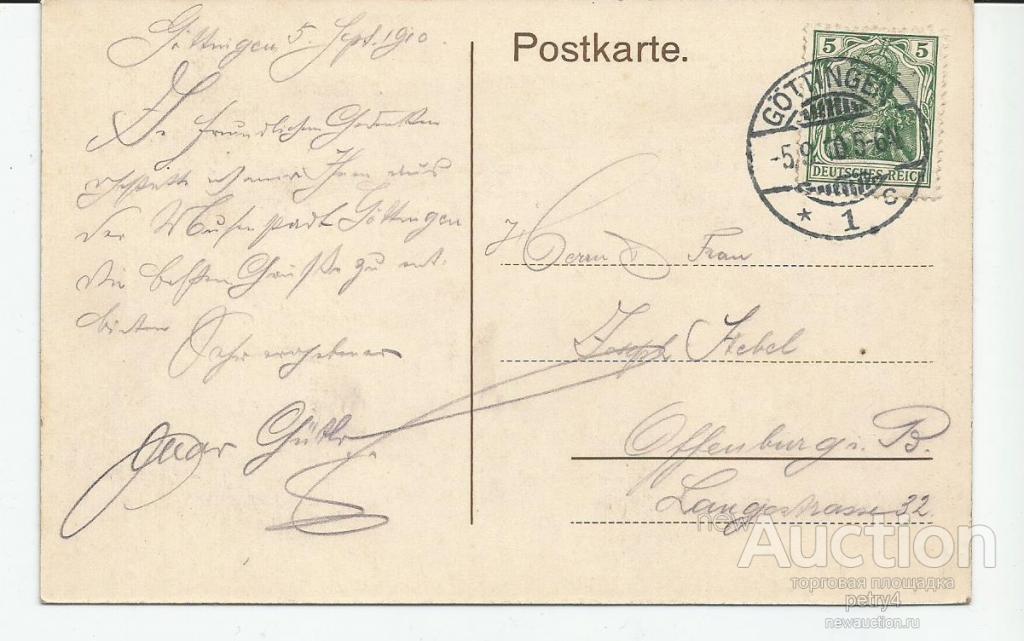 Göttingen 5. Sept. 1910.
In freundlichem Gedenken
Ihnen aus
der Musenstadt Göttingen
die besten Grüße zu ent-
bieten
Sehr ergebener
Postkarte.
5 5
DEUTSCHES REICH
GÖTTINGEN
-5.9.10.5-6N
* 1 c
Herrn & Frau
Joseph Stebel
Offenburg i. B.
Langestrasse 32.
newAuction
торговая площадка
petry4
newauction.ru